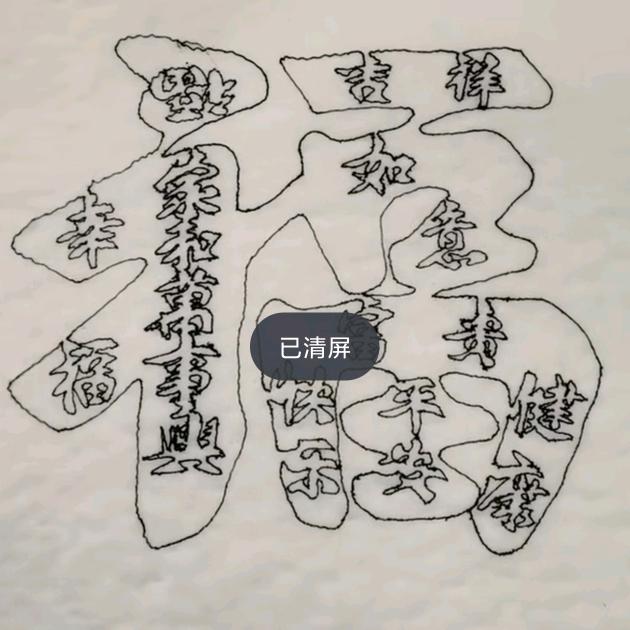 吉祥
如
意
家和萬事興
幸
福
已清屏
快乐
平安
健康